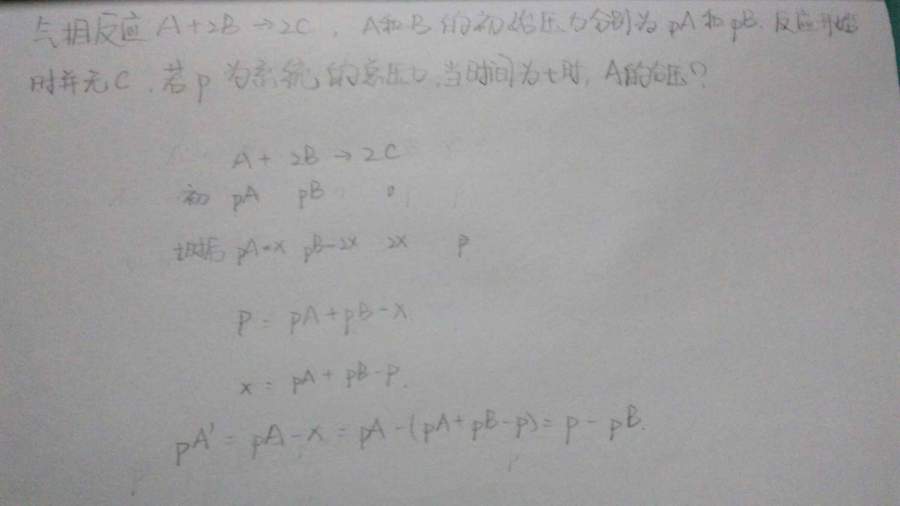 气相反应 A+2B→2C，A和B的初始压力分别为 pA 和 pB. 反应开始
时并无C，若 p 为系统的总压，当时间为t时，A的分压？
A + 2B → 2C
初 pA pB 0
t时后 pA-x pB-2x 2x p
p = pA+pB-x
x = pA+pB-p.
pA' = pA-x = pA-(pA+pB-p) = p-pB.